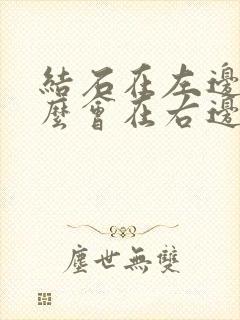 結石在左邊
麼會在右邊
塵世無雙